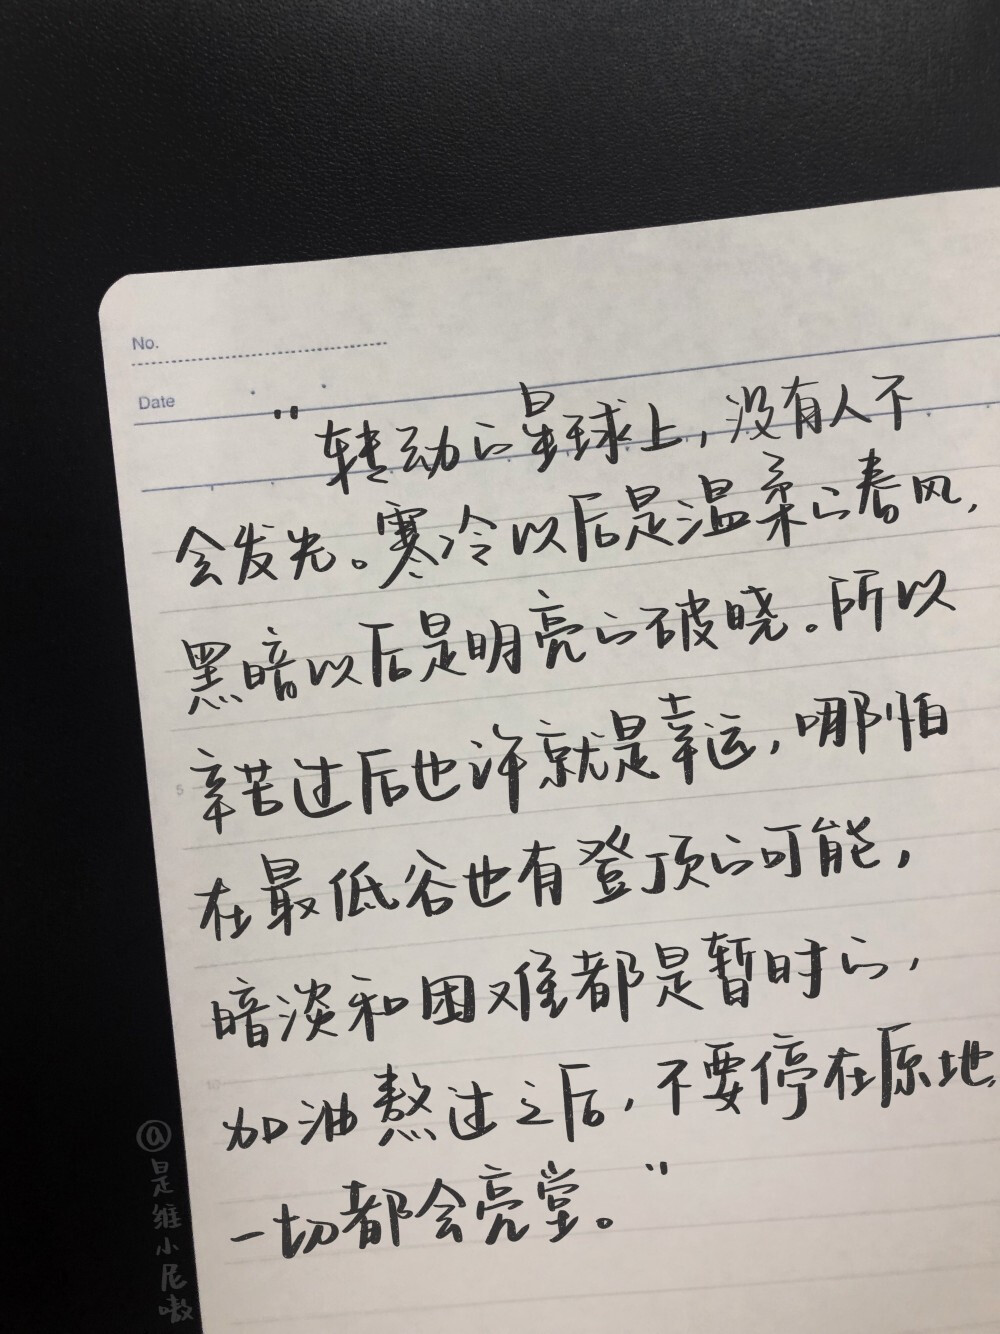 No.
Date
"转动的星球上，没有人不
会发光。寒冷以后是温柔的春风，
黑暗以后是明亮的破晓。所以
辛苦过后也许就是幸运，哪怕
在最低谷也有登顶的可能，
暗淡和困难都是暂时的，
加油熬过之后，不要停在原地，
一切都会亮堂。"
5
10
@是维小尼嗷